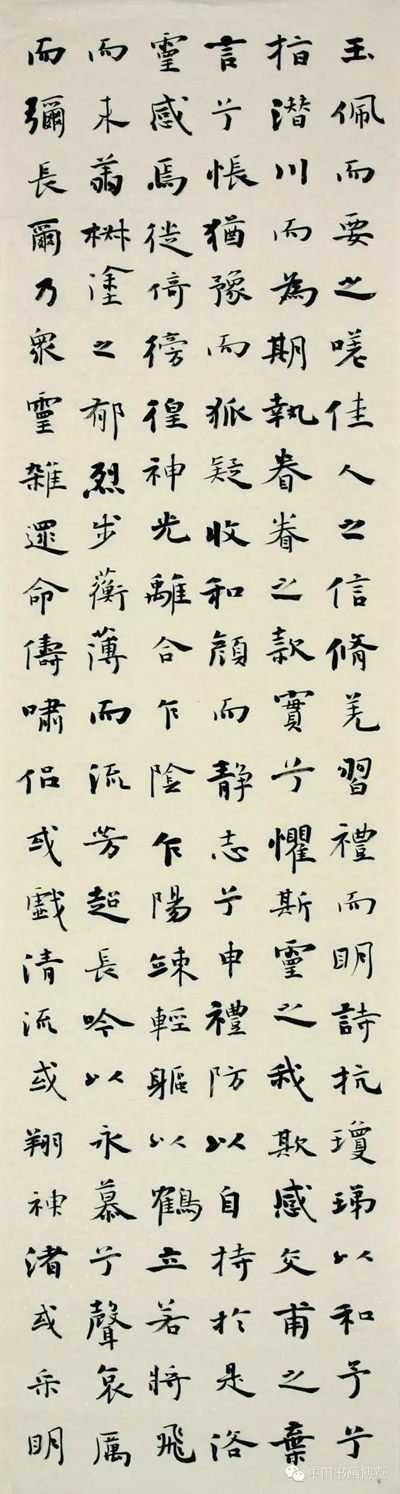 玉佩而要之嗟佳人之信脩羌習禮而明詩抗瓊珶以和予兮
指潜川而為期執眷眷之款實兮懼斯靈之我欺感交甫之棄
言兮悵猶豫而狐疑收和顏而靜志兮申禮防以自持於是洛
靈感焉徙倚徬徨神光離合乍陰乍陽竦輕軀以鶴立若將飛
而未翥椒塗之郁烈步蘅薄而流芳超長吟以永慕兮聲哀厲
而彌長爾乃眾靈雜遝命儔嘯侣或戲清流或翔神渚或采明
中国书画博览